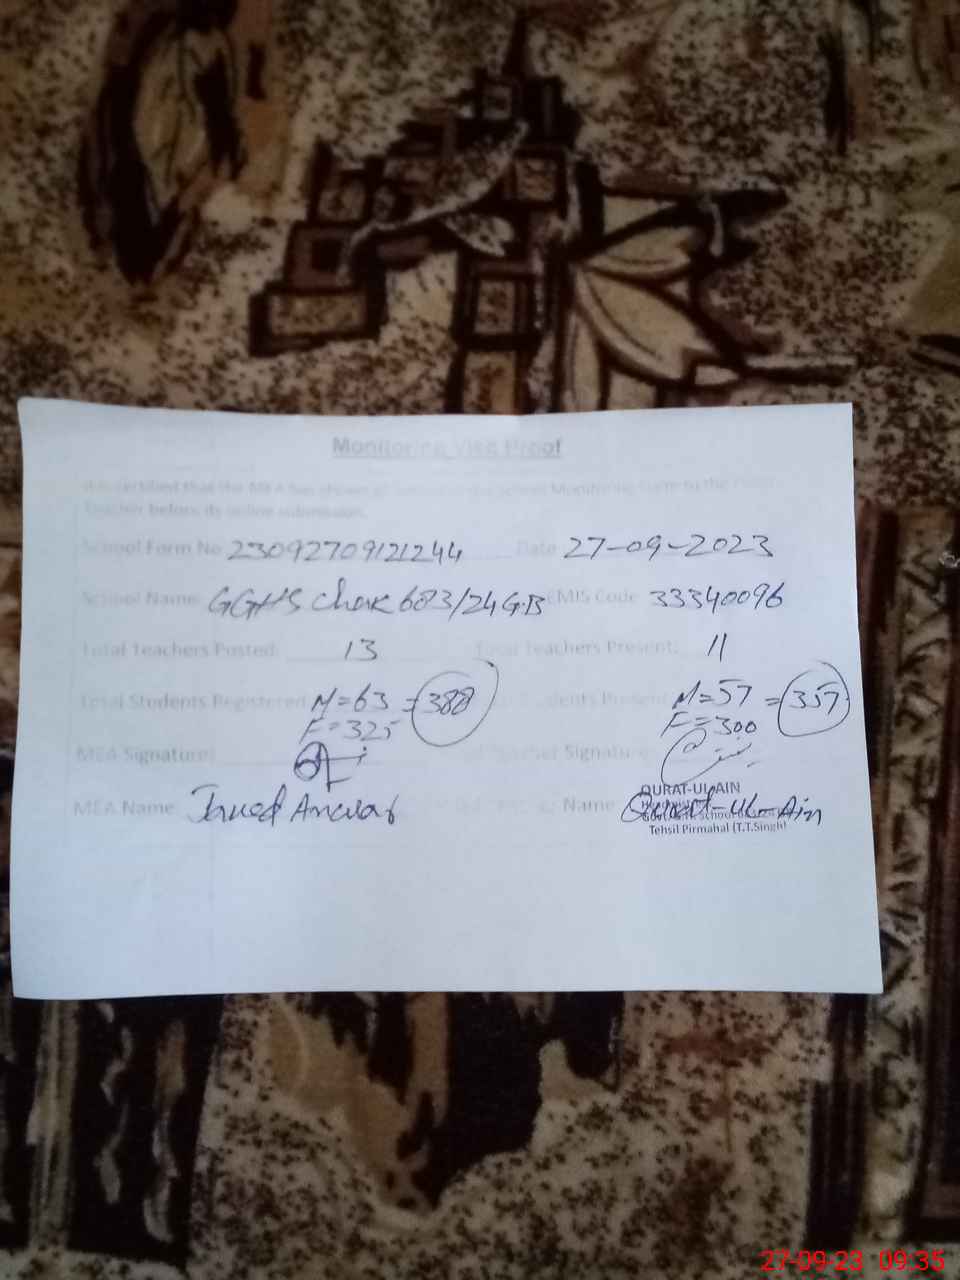 Monitoring Visit Proof
It is certified that the MEA has shown School Monitoring Form to the
Teacher before its online submission.
School Form No 23092709121244 Date 27-09-2023
School Name: GGHS Chak 683/24 G.B EMIS Code 33340096
Total Teachers Posted: 13 Total Teachers Present: 11
Total Students Registered M=63 =388 Students Present M=57 =357
F=325 F=300
MEA Signature: Teacher Signature
QURAT-UL-AIN
MEA Name: Javed Anwar Name: Qurat-ul-Ain
Tehsil Pirmahal (T.T.Singh)
27-09-23 09:35